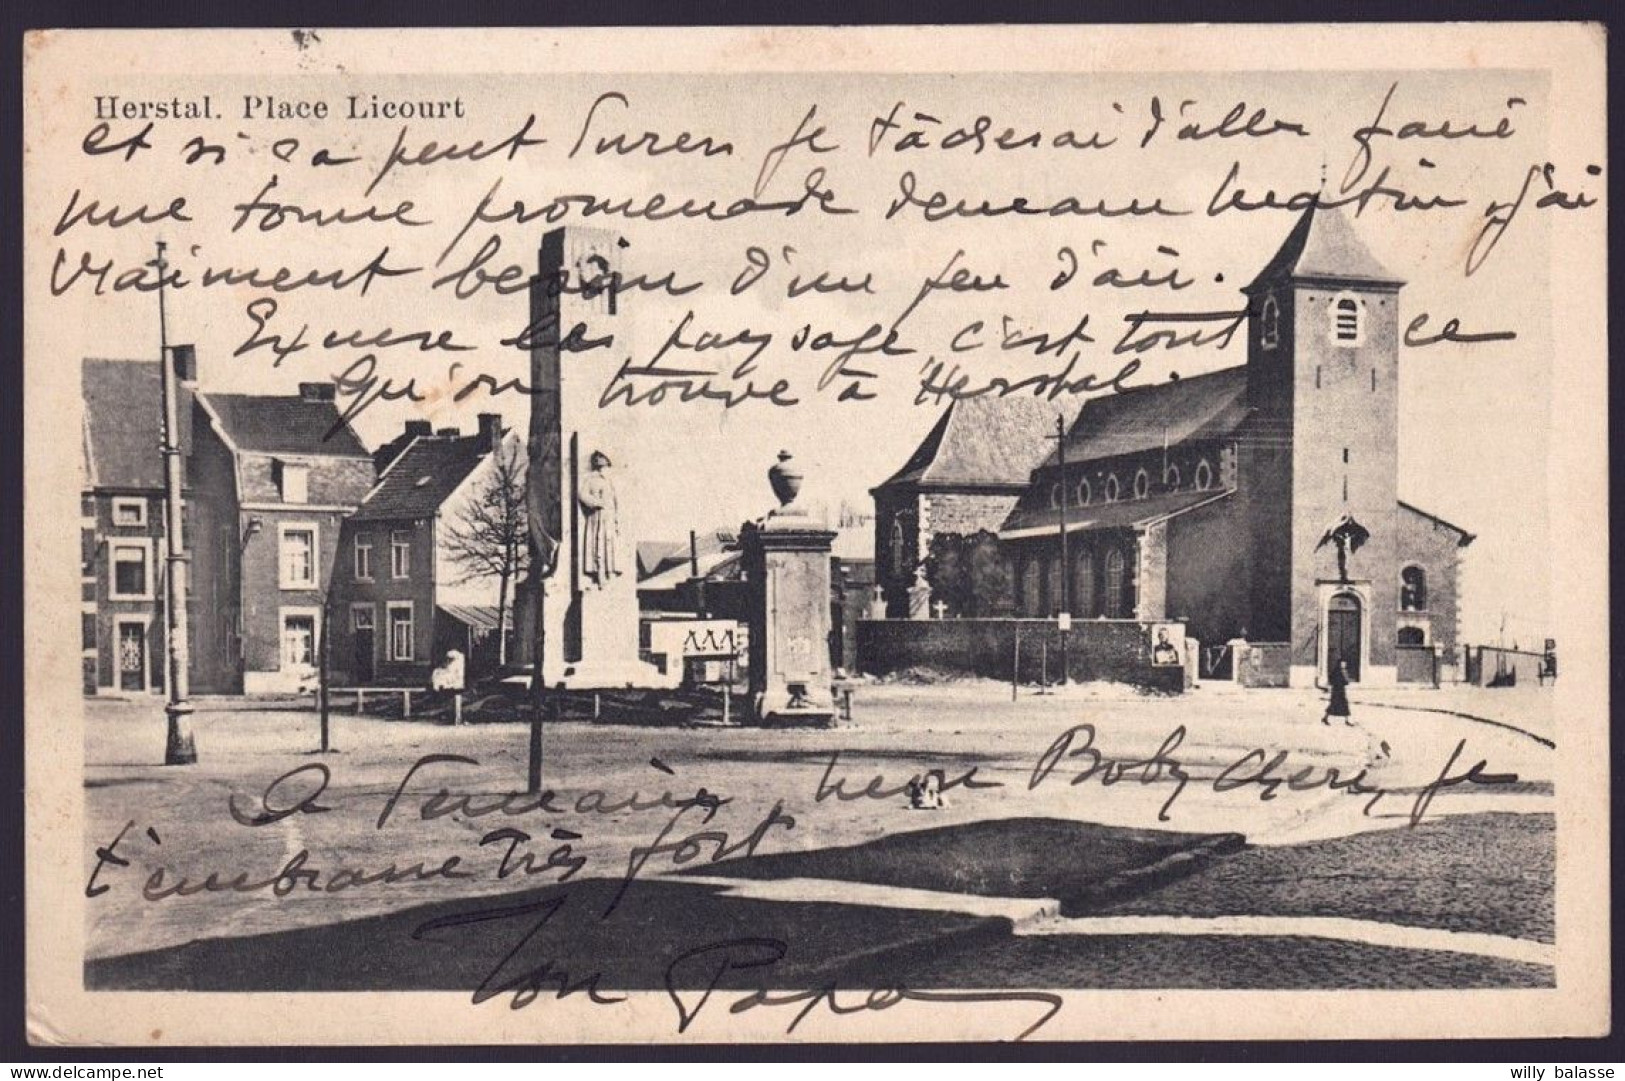 Herstal. Place Licourt
et si ça peut durer je tâcherai d'aller faire
une bonne promenade demain matin, j'ai
vraiment besoin d'un peu d'air.
Excuse les paysage, c'est tout ce
qu'on trouve à Herstal.
A demain, mon Boby chéri, je
t'embrasse très fort
Ton Papa
willy balasse